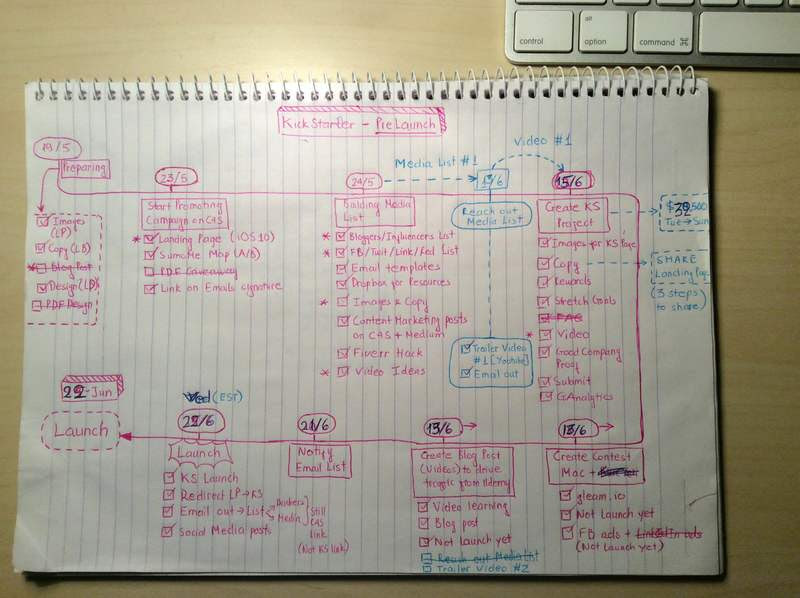 control
alt
option
command ⌘
KickStarter - PreLaunch
19/5
Preparing
Images
(LP)
Copy (LB)
Blog Post
Design (LP)
PDF Design
23/5
Start Promoting
Campaign on CAS
Landing Page (iOS10)
SumoMe Map (A/B)
PDF Giveaway
Link on Emails signature
24/5
Building Media
List
Bloggers/Influencers List
FB/Twit/Link/Red List
Email templates
Dropbox for Resources
Images & Copy
Content Marketing posts
on CAS + Medium
Fiverr Hack
Video Ideas
Media List #1
Video #1
13/6
Reach out
Media List
Trailer Video
#1 [Youtube]
Email out
15/6
Create KS
Project
Images for KS Page
Copy
Rewards
Stretch Goals
FAQ
Video
Good Company
Proof
Submit
GAnalytics
Tue → Sun
SHARE
Landing Page
(3 steps
to share)
22-Jun
Launch
Wed (EST)
22/6
Launch
KS Launch
Redirect LP → KS
Email out → List
Media
Still
CAS
link
(Not KS link)
Social Media posts
21/6
Notify
Email List
13/6
Create Blog Post
(Videos) to drive
traffic from Udemy
Video learning
Blog post
Not Launch yet
Reach out Media List
Trailer Video #2
13/6
Create Contest
Mac +
gleam.io
Not Launch yet
FB ads + LinkedIn ads
(Not Launch yet)